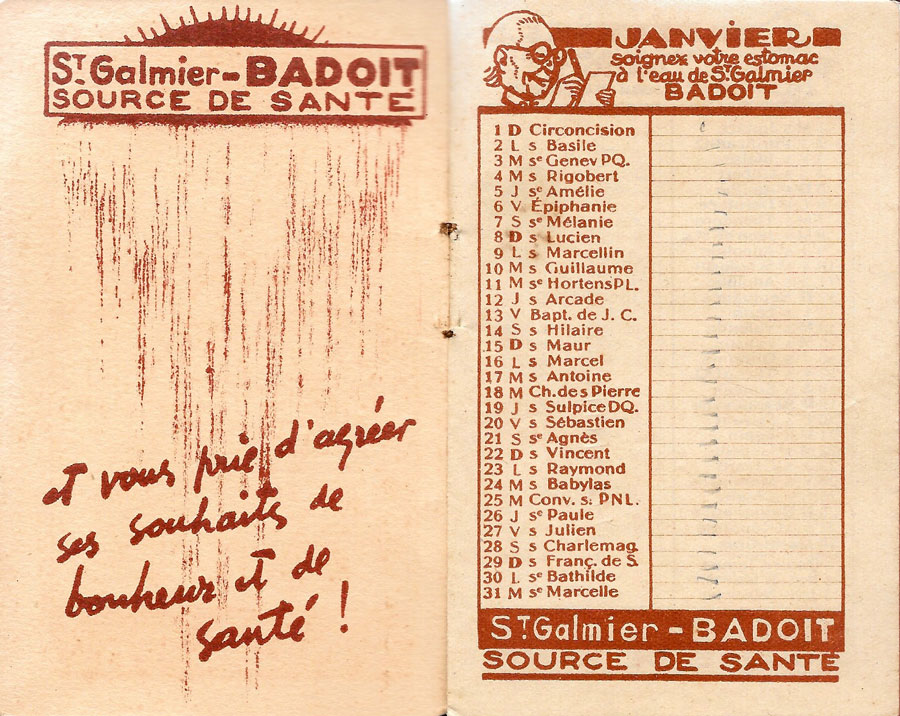 ST. Galmier-BADOIT
SOURCE DE SANTÉ
et vous prie d'agréer
ses souhaits de
bonheur et de
santé !
JANVIER
soignez votre estomac
à l'eau de St. Galmier
BADOIT
1 D Circoncision
2 L s Basile
3 M se Genev PQ.
4 M s Rigobert
5 J se Amélie
6 V Épiphanie
7 S se Mélanie
8 D s Lucien
9 L s Marcellin
10 M s Guillaume
11 M se Hortens PL.
12 J s Arcade
13 V Bapt. de J. C.
14 S s Hilaire
15 D s Maur
16 L s Marcel
17 M s Antoine
18 M Ch. des Pierre
19 J s Sulpice DQ.
20 V s Sébastien
21 S se Agnès
22 D s Vincent
23 L s Raymond
24 M s Babylas
25 M Conv. s: PNL.
26 J se Paule
27 V s Julien
28 S s Charlemag.
29 D s Franç. de S.
30 L se Bathilde
31 M se Marcelle
ST Galmier-BADOIT
SOURCE DE SANTÉ